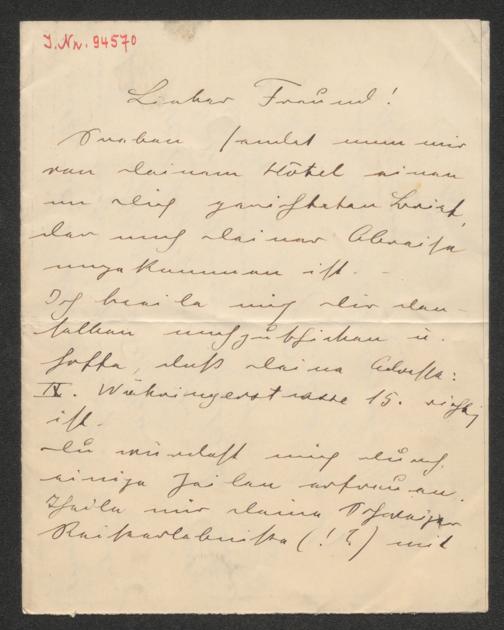 I.Nr. 94570
Lieber Freund!
Soeben sendet man mir
von deinem Hôtel einen
an dich gerichteten Brief,
der nach deiner Abreise
angekommen ist.
Ich beeile mich dir den-
selben nachzuschicken u.
hoffe, daß deine Adresse:
IX. Währingerstrasse 15. richtig
ist.
Du würdest mich durch
einige Zeilen erfreuen.
Theile mir deine Schweizer
Reiseerlebnisse (!?) mit